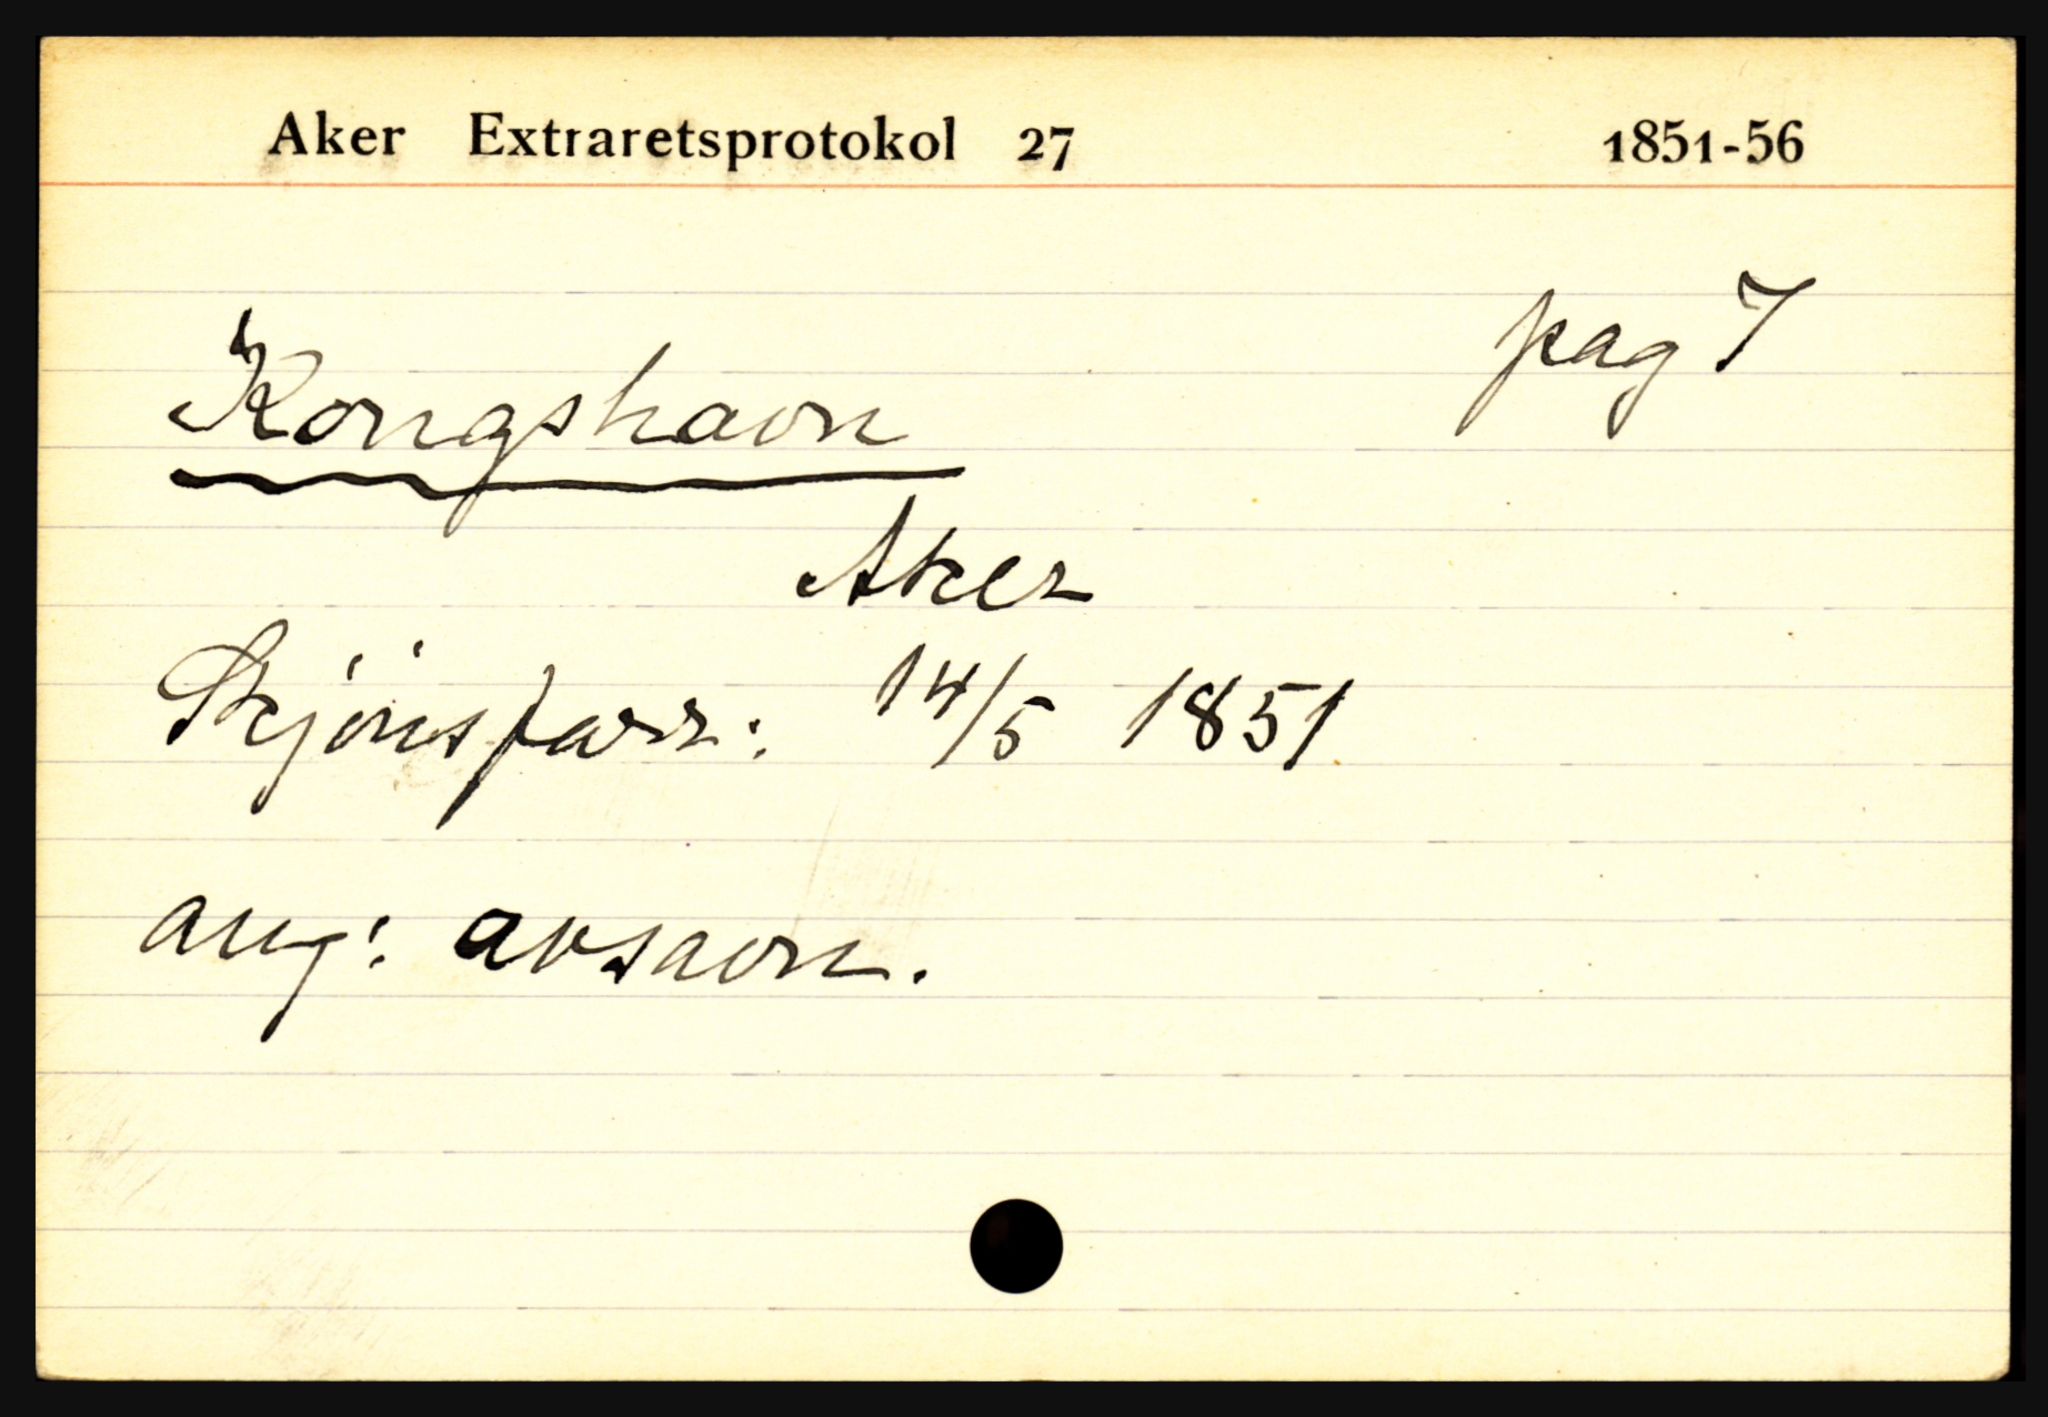 Aker Extraretsprotokol 27 1851-56
pag 7
Kongshavn
Aker
Skjönsforr: 14/5 1851
ang: avsavn.